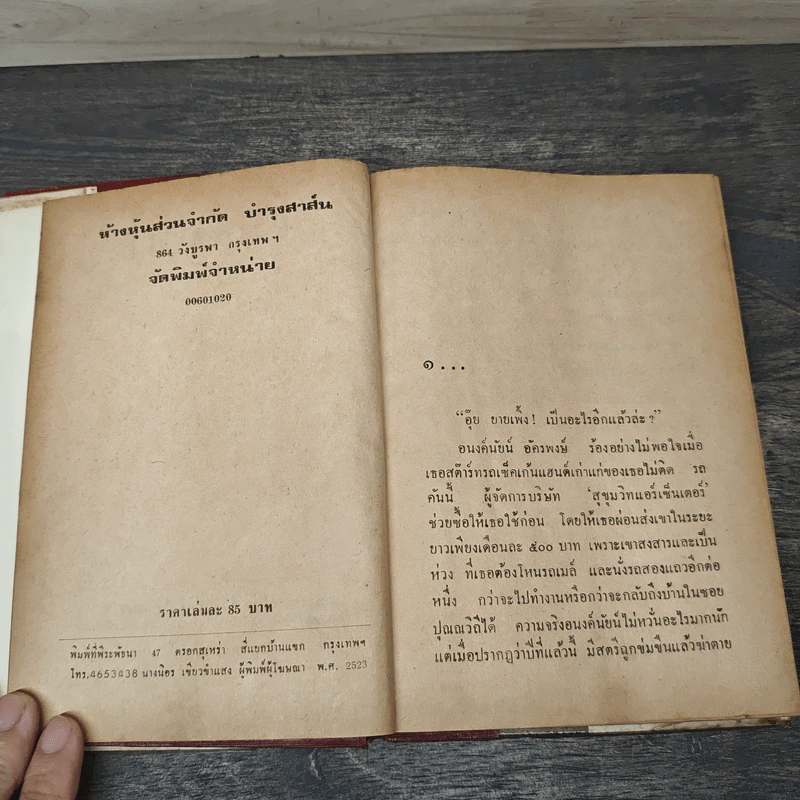 ห้างหุ้นส่วนจำกัด บำรุงสาส์น
864 วังบูรพา กรุงเทพฯ
จัดพิมพ์จำหน่าย
00601020
ราคาเล่มละ 85 บาท
พิมพ์ที่พีระพัธนา 47 ตรอกสุเหร่า สี่แยกบ้านแขก กรุงเทพฯ
โทร.4653438 นางนิอร เขียวขำแสง ผู้พิมพ์ผู้โฆษณา พ.ศ. 2523
๑...
“อุ๊ย ยายเพิ้ง! เป็นอะไรอีกแล้วล่ะ?”
อนงค์นัยน์ อัครพงษ์ ร้องอย่างไม่พอใจเมื่อ
เธอสต๊าร์ทรถเซ็คเก้นแฮนด์เก่าแก่ของเธอไม่ติด รถ
คันนี้ ผู้จัดการบริษัท ‘สุขุมวิทแอร์เซ็นเตอร์’
ช่วยซื้อให้เธอใช้ก่อน โดยให้เธอผ่อนส่งเขาในระยะ
ยาวเพียงเดือนละ ๕๐๐ บาท เพราะเขาสงสารและเป็น
ห่วง ที่เธอต้องโหนรถเมล์ และนั่งรถสองแถวอีกต่อ
หนึ่ง กว่าจะไปทำงานหรือกว่าจะกลับถึงบ้านในซอย
ปุณณวิถีได้ ความจริงอนงค์นัยน์ไม่หวั่นอะไรมากนัก
แต่เมื่อปรากฏว่าปีที่แล้วนี้ มีสตรีถูกข่มขืนแล้วฆ่าตาย